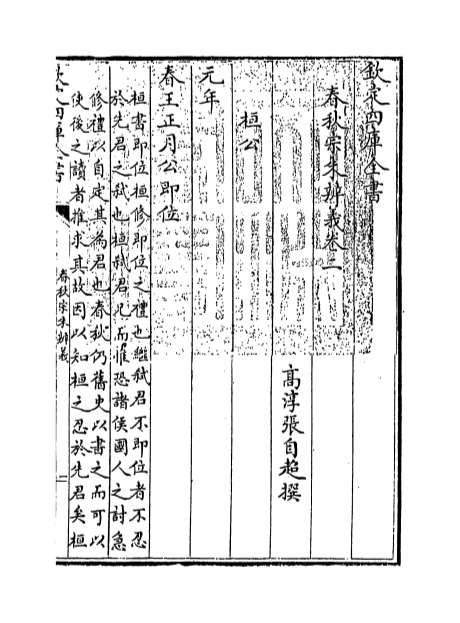 欽定四庫全書
春秋宗朱辨義卷二
高淳張自超撰
桓公
元年
春王正月公即位
桓書即位桓修即位之禮也繼弑君不即位者不忍
於先君之弑也桓弑君兄而惟恐諸侯國人之討急
修禮以自定其為君也春秋仍舊史以書之而可以
使後之讀者推求其故因以知桓之忍於先君矣桓
欽定四庫全書
春秋宗朱辨義